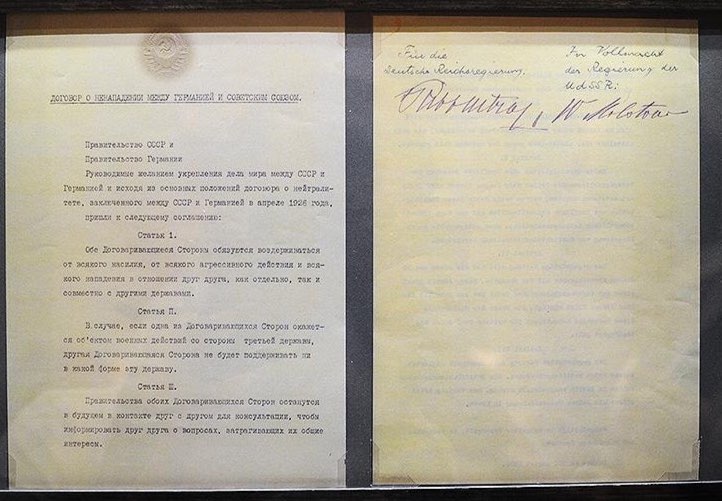 ДОГОВОР О НЕНАПАДЕНИИ МЕЖДУ ГЕРМАНИЕЙ И СОВЕТСКИМ СОЮЗОМ.
Правительство СССР и
Правительство Германии
Руководимые желанием укрепления дела мира между СССР и
Германией и исходя из основных положений договора о нейтрали-
тете, заключенного между СССР и Германией в апреле 1926 года,
пришли к следующему соглашению:
Статья 1.
Обе Договаривающиеся Стороны обязуются воздерживаться
от всякого насилия, от всякого агрессивного действия и вся-
кого нападения в отношении друг друга, как отдельно, так и
совместно с другими державами.
Статья П.
В случае, если одна из Договаривающихся Сторон окажет-
ся об'ектом военных действий со стороны третьей державы,
другая Договаривающаяся Сторона не будет поддерживать ни
в какой форме эту державу.
Статья Ш.
Правительства обоих Договаривающихся Сторон останутся
в будущем в контакте друг с другом для консультации, чтобы
информировать друг друга о вопросах, затрагивающих их общие
интересы.
Für die
Deutsche Reichsregierung.
Ribbentrop
In Vollmacht
der Regierung der
UdSSR:
W Molotow